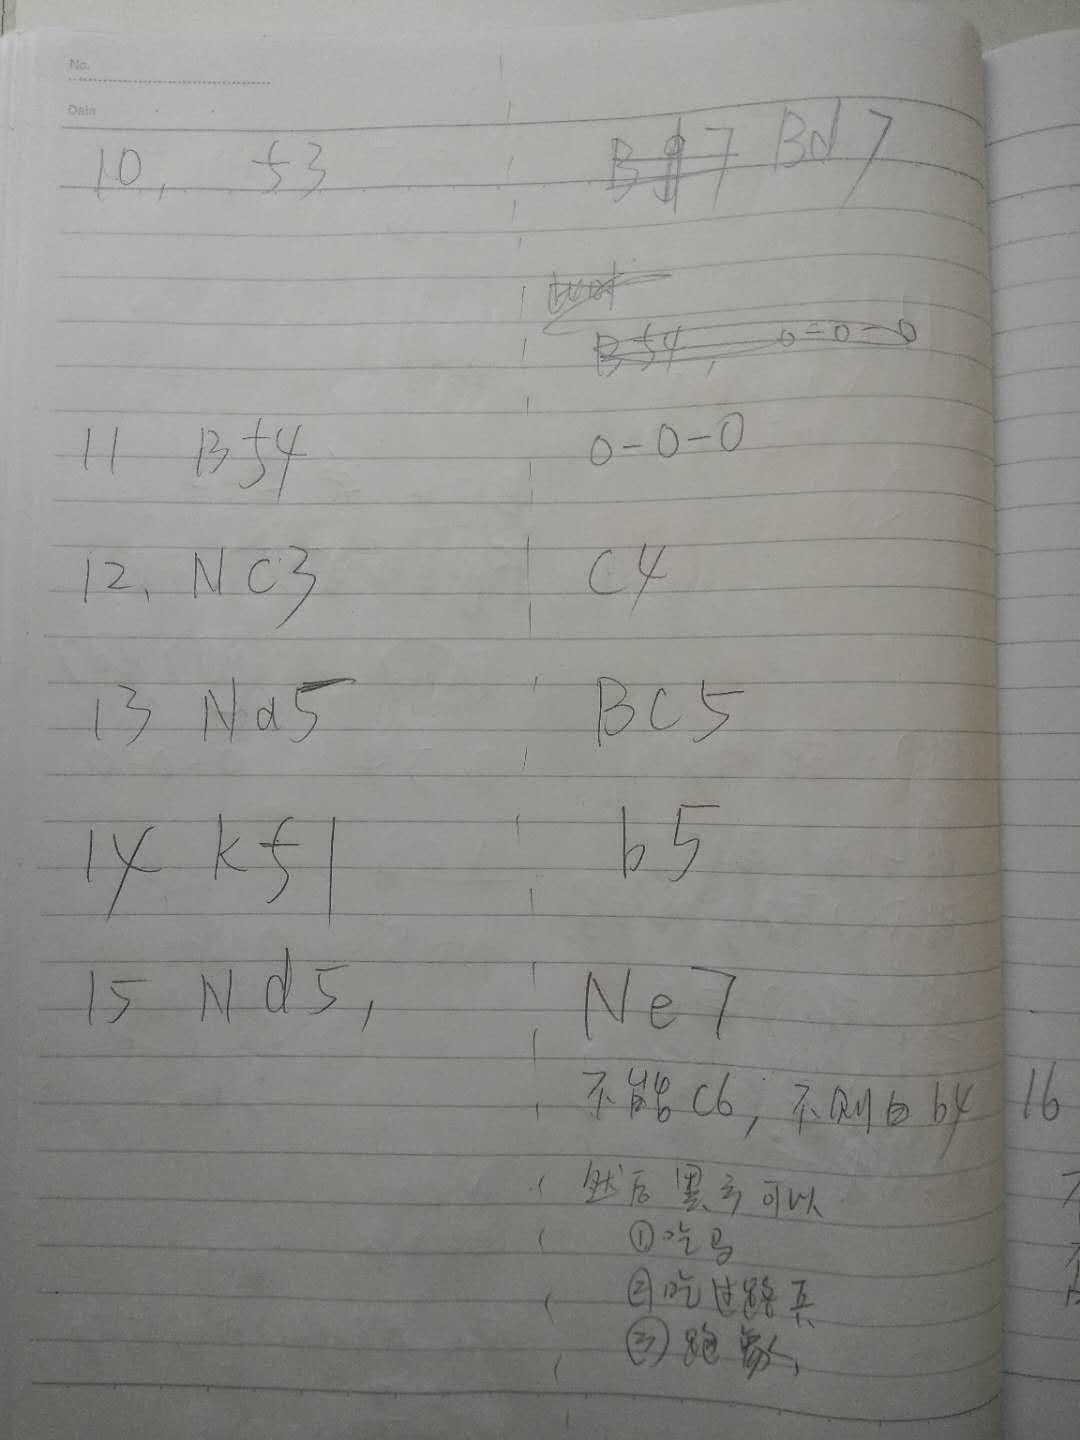 No.
Date
10, f3 Bd7
Bf4, 0-0-0
11 Bf4 0-0-0
12, NC3 C4
13 Na5 BC5
14 kf1 b5
15 Nd5, Ne7
不能C6, 不则白b4 16
然后黑子可以
①吃马
②吃过路兵
③跑象,